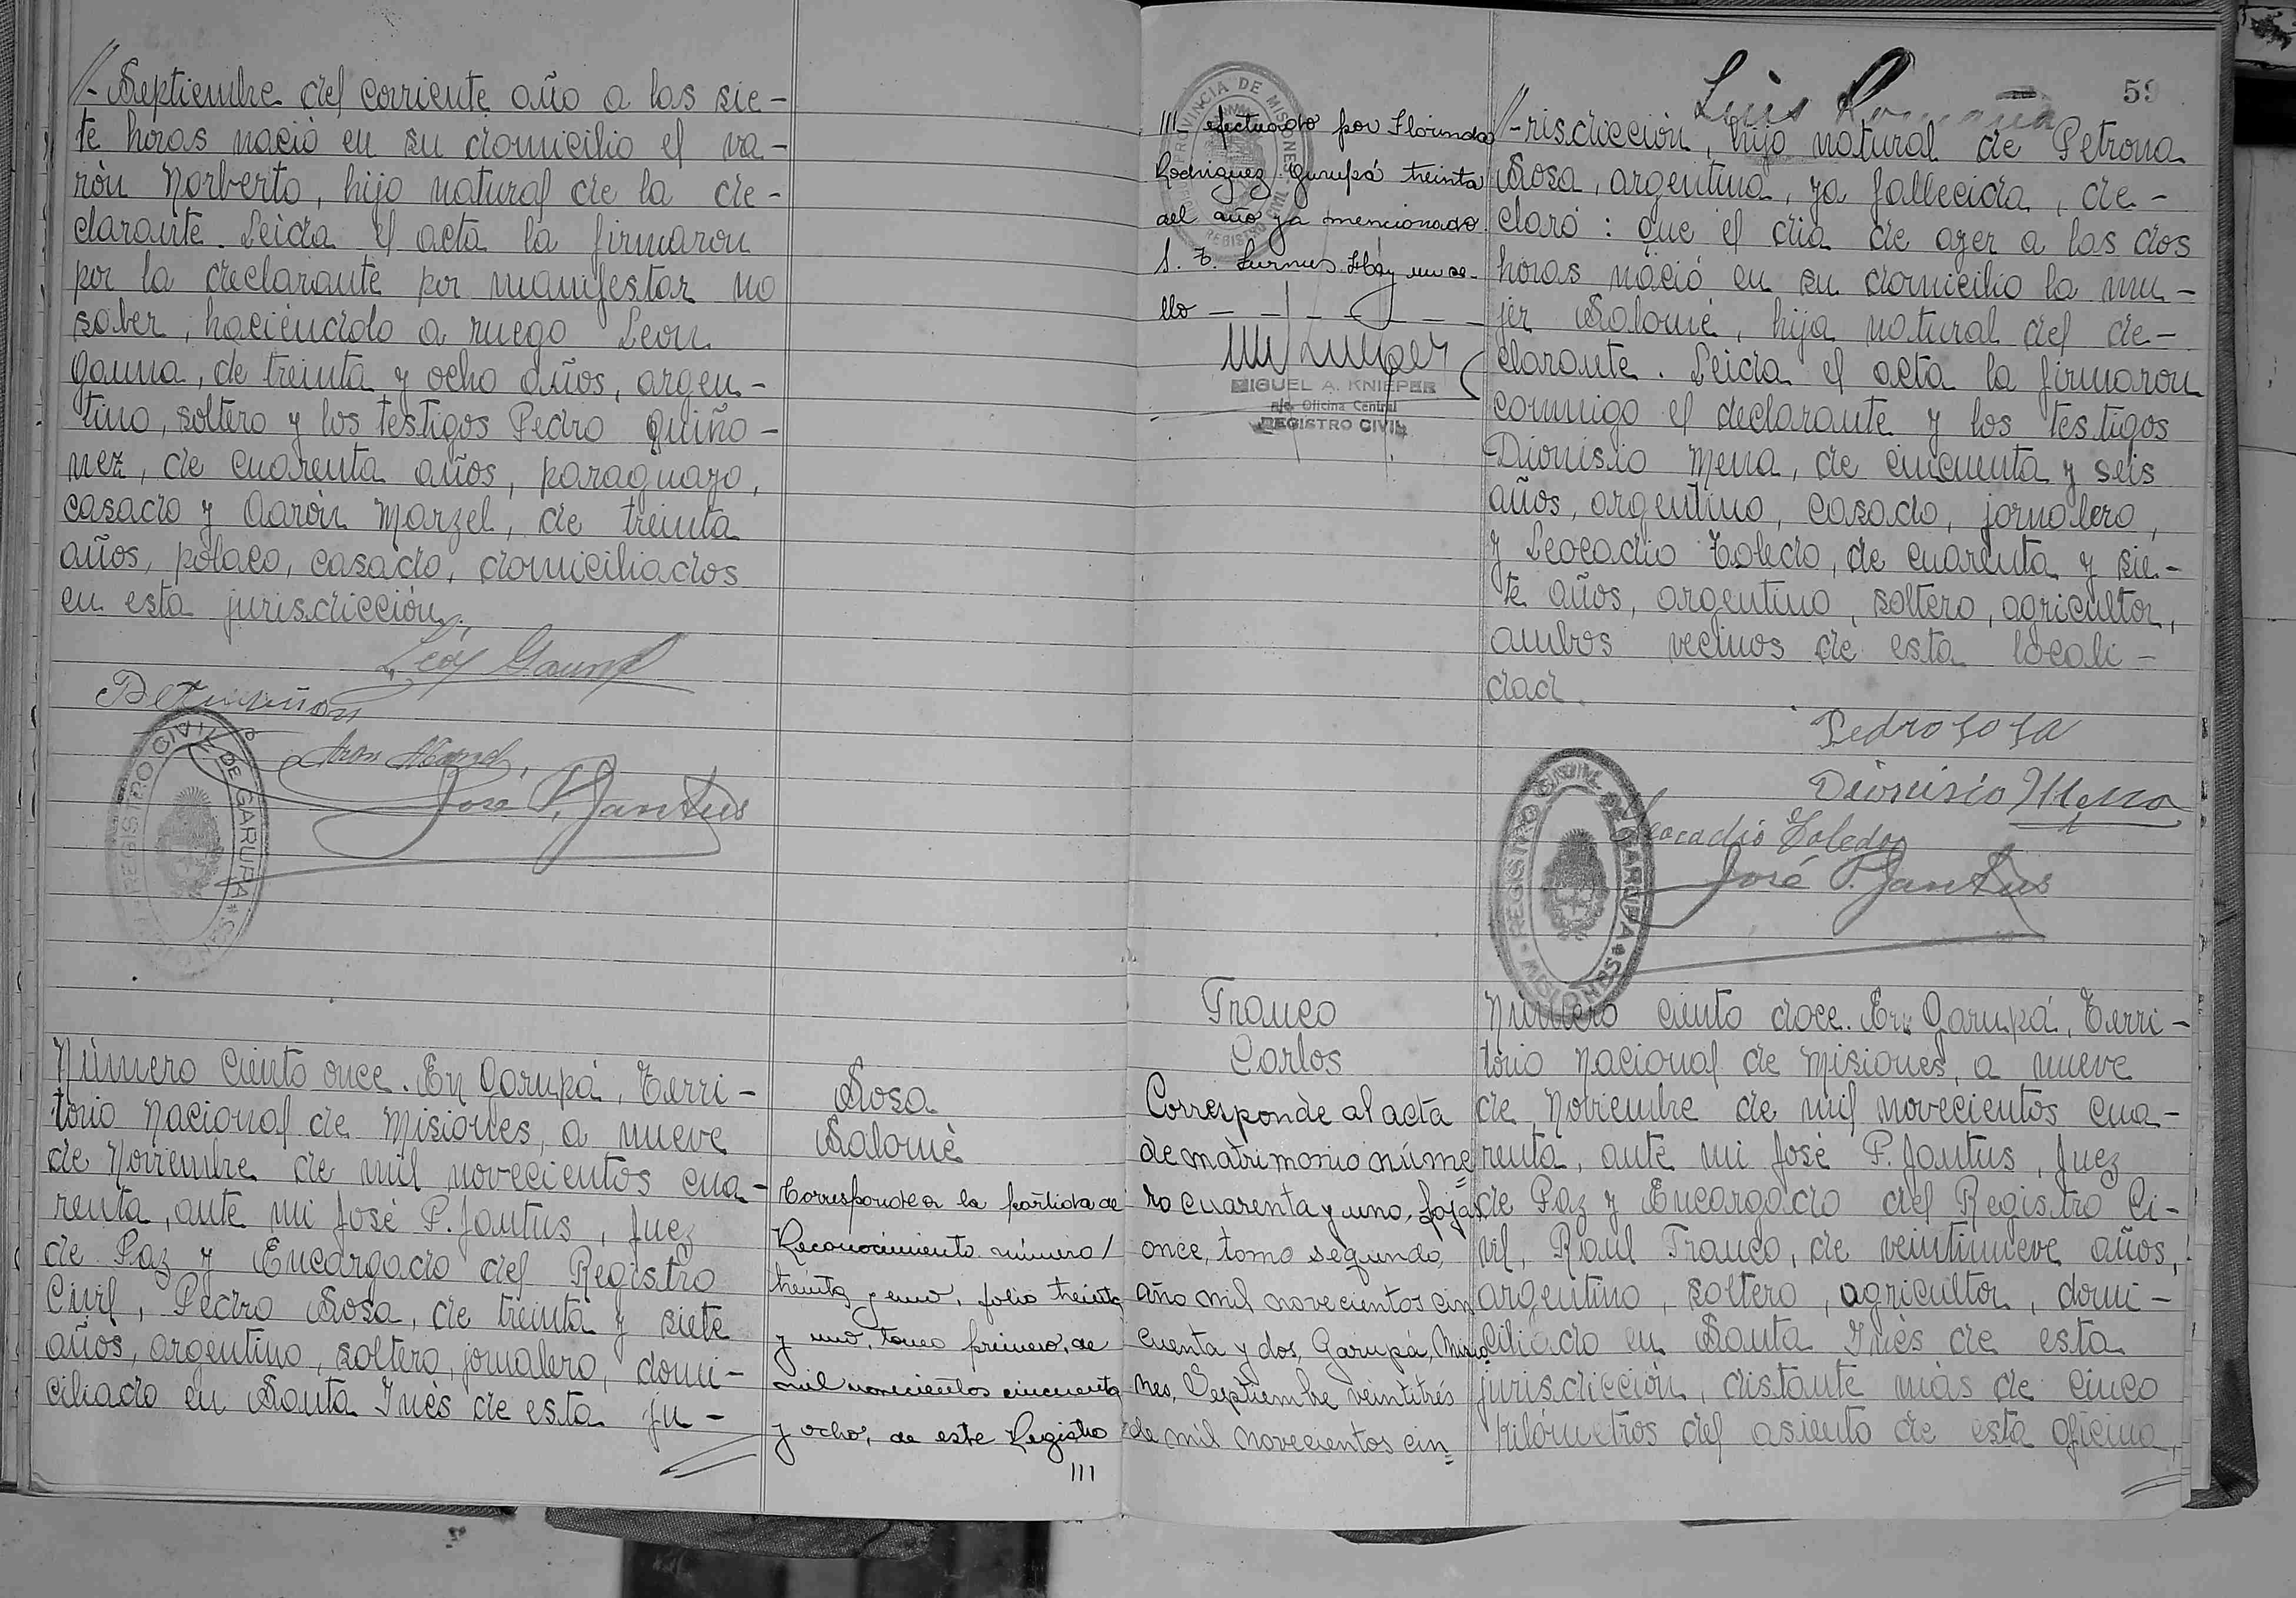 //- Septiembre del corriente año a las sie-
te horas nació en su domicilio el va-
rón Norberto, hijo natural de la de-
clarante. Leida el acta la firmaron
por la declarante por manifestar no
saber, haciéndolo a ruego Leon
Gauna, de treinta y ocho años, argen-
tino, soltero y los testigos Pedro Quiño-
nez, de cuarenta años, paraguayo,
casado y Aarón Marzel, de treinta
años, polaco, casado, domiciliados
en esta jurisdicción.
José P. Jantus
REGISTRO CIVIL DE GARUPA
MISIONES
Número ciento once. En Garupá, Terri-
torio Nacional de Misiones, a nueve
de Noviembre de mil novecientos cua-
renta, ante mi José P. Jantus, Juez
de Paz y Encargado del Registro
Civil, Pedro Sosa, de treinta y siete
años, argentino, soltero, jornalero, domi-
ciliado en Santa Inés de esta ju-
//
Sosa
Salomé
Corresponde a la partida de
Reconocimiento número/
treinta y uno, folio treinta
y uno, tomo primero, de
mil novecientos cincuenta
y ocho, de este Registro
///
PROVINCIA DE MISIONES
REGISTRO CIVIL
/// efectuado por Florinda
Rodriguez. Garupá treinta
del año ya mencionado
Hay un se-
llo
MIGUEL A. KNIEPER
a/c. Oficina Central
REGISTRO CIVIL
Franco
Carlos
Corresponde al acta
de matrimonio núme
ro cuarenta y uno, fojas
once, tomo segundo,
año mil novecientos cin
cuenta y dos, Garupá, Misio
nes, Septiembre veintitrés
de mil novecientos cin=
59
Luis
//-risdicción, hijo natural de Petrona
Sosa, argentina, ya fallecida, de-
claró: que el dia de ayer a las dos
horas nació en su domicilio la mu-
jer Salomé, hija natural del de-
clarante. Leida el acta la firmaron
conmigo el declarante y los testigos
Dionisio Mena, de cincuenta y seis
años, argentino, casado, jornalero,
y Leocadio Toledo, de cuarenta y sie-
te años, argentino, soltero, agricultor,
ambos vecinos de esta locali-
dad.
Pedro Sosa
Dionisio Mena
Leocadio Toledo
José P. Jantus
REGISTRO CIVIL DE GARUPA
MISIONES
Número ciento doce. En Garupá, Terri-
torio Nacional de Misiones, a nueve
de Noviembre de mil novecientos cua-
renta, ante mi José P. Jantus, Juez
de Paz y Encargado del Registro Ci-
vil, Raul Franco, de veintinueve años,
argentino, soltero, agricultor, domi-
ciliado en Santa Inés de esta
jurisdicción, distante más de cinco
kilómetros del asiento de esta oficina,
//